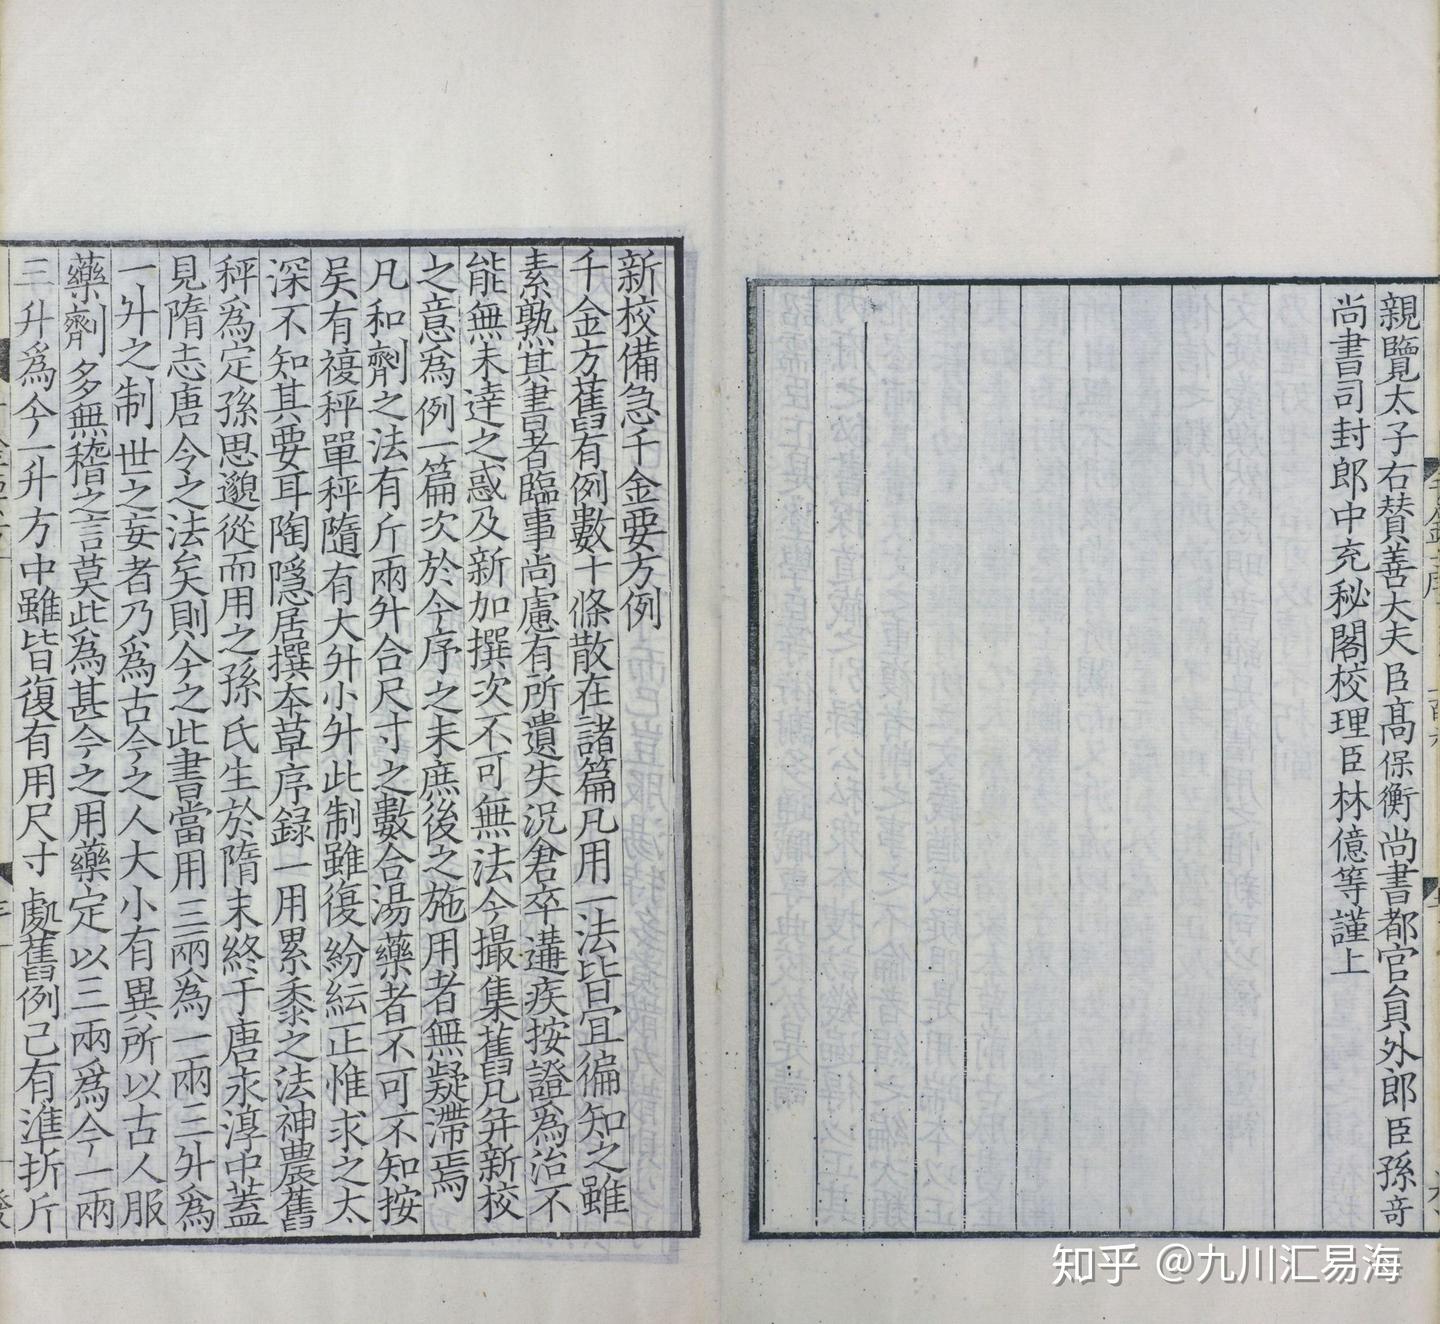 親覽太子右賛善大夫臣高保衡尚書都官員外郎臣孫奇
尚書司封郎中充秘閣校理臣林億等謹上
新校備急千金要方例
千金方舊有例數十條散在諸篇凡用一法皆宜徧知之雖
素熟其書者臨事尚慮有所遺失況倉卒遘疾按證為治不
能無未達之惑及新加撰次不可無法今撮集舊凡幷新校
之意為例一篇次於今序之末庶後之施用者無疑滯焉
凡和劑之法有斤兩升合尺寸之數合湯藥者不可不知按
吳有複秤單秤隋有大升小升此制雖復紛紜正惟求之太
深不知其要耳陶隱居撰本草序録一用累黍之法神農舊
秤為定孫思邈從而用之孫氏生於隋末終于唐永淳中蓋
見隋志唐令之法矣則今之此書當用三兩為一兩三升為
一升之制世之妄者乃為古今之人大小有異所以古人服
藥劑多無稽之言莫此為甚今之用藥定以三兩為今一兩
三升為今一升方中雖皆復有用尺寸處舊例已有準折斤
知乎 @九川汇易海